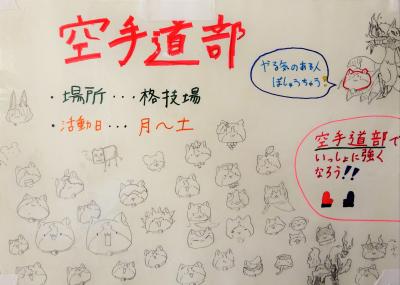 空手道部
・場所・・・格技場
・活動日・・・月〜土
やる気のある人
ぼしゅうちゅう!
空手道部で
いっしょに強く
なろう!!